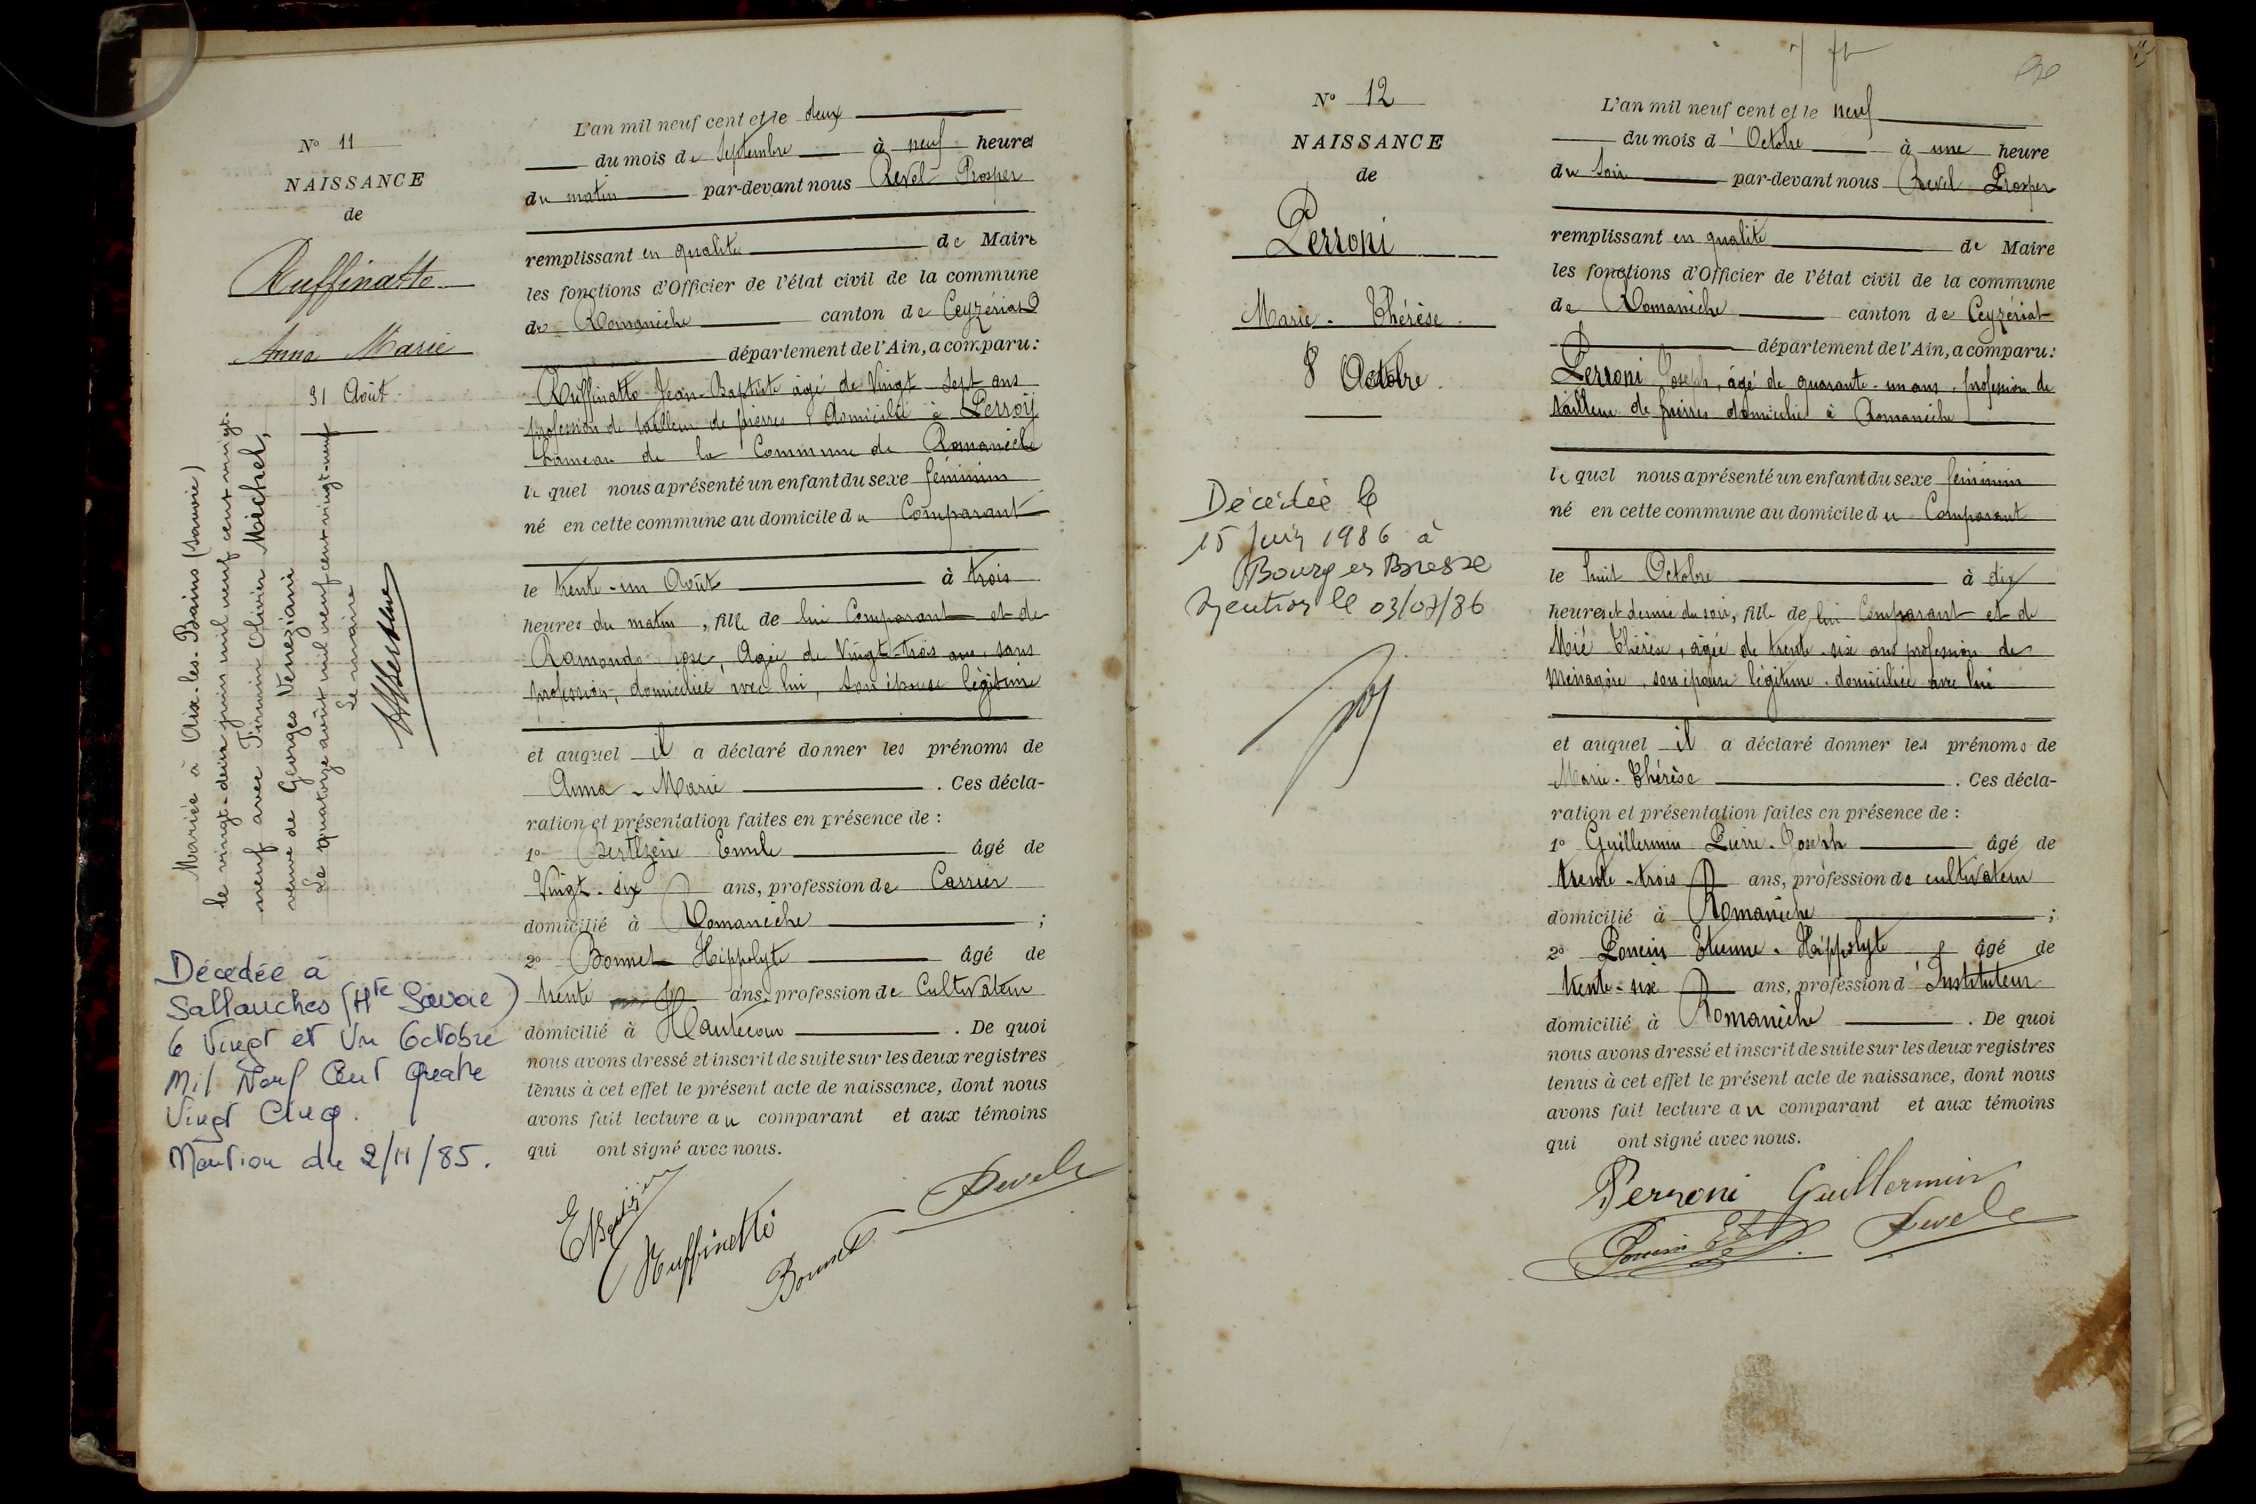 N° 11
NAISSANCE
de
Ruffinatto
Anna Marie
31 Août
Mariée à Aix-les-Bains (Savoie)
le vingt-deux juin mil neuf cent vingt-
neuf avec Firmin Olivier Michel,
veuve de Georges Veneziani
Le quatorze août mil neuf cent vingt-neuf
Le maire
Décédée à
Sallanches (Hte Savoie)
le Vingt et Un Octobre
Mil Neuf Cent Quatre
Vingt Cinq.
Mention du 2/11/85.
L'an mil neuf cent et le deux
du mois de Septembre à neuf heures
du matin par-devant nous Revel Prosper
remplissant en qualité de Maire
les fonctions d'Officier de l'état civil de la commune
de Romanèche canton de Ceyzériat
département de l'Ain, a comparu:
Ruffinatto Jean-Baptiste âgé de Vingt-Sept ans
profession de tailleur de pierres, domicilié à Perroy
hameau de la Commune de Romanèche
lequel nous a présenté un enfant du sexe féminin
né en cette commune au domicile du Comparant
le trente-un Août à trois
heures du matin, fille de lui Comparant et de
Ramondo Rose, Agée de Vingt-trois ans, sans
profession, domiciliée avec lui, son épouse légitime
et auquel il a déclaré donner les prénoms de
Anna-Marie. Ces décla-
ration et présentation faites en présence de:
1° Emile âgé de
Vingt-six ans, profession de Carrier
domicilié à Romanèche;
2° Bonnet Hippolyte âgé de
trente ans, profession de Cultivateur
domicilié à Hautecour. De quoi
nous avons dressé et inscrit de suite sur les deux registres
tenus à cet effet le présent acte de naissance, dont nous
avons fait lecture au comparant et aux témoins
qui ont signé avec nous.
Ruffinatto
Bonnet
Revel
N° 12
NAISSANCE
de
Perroni
Marie-Thérèse
8 Octobre
Décédée le
15 Juin 1986 à
Bourg en Bresse
Mention le 03/07/86
L'an mil neuf cent et le neuf
du mois d'Octobre à une heure
du soir par-devant nous Revel Prosper
remplissant en qualité de Maire
les fonctions d'Officier de l'état civil de la commune
de Romanèche canton de Ceyzériat
département de l'Ain, a comparu:
Perroni Joseph, âgé de quarante-un ans, profession de
tailleur de pierres domicilié à Romanèche
lequel nous a présenté un enfant du sexe féminin
né en cette commune au domicile du Comparant
le huit Octobre à dix
heures et demie du soir, fille de lui Comparant et de
Mié Thérèse, âgée de trente-six ans profession de
Ménagère, son épouse légitime, domiciliée avec lui
et auquel il a déclaré donner les prénoms de
Marie-Thérèse. Ces décla-
ration et présentation faites en présence de:
1° Guillermin Pierre-Joseph âgé de
trente-trois ans, profession de cultivateur
domicilié à Romanèche;
2° Poncin Etienne-Hippolyte âgé de
trente-six ans, profession d'Instituteur
domicilié à Romanèche. De quoi
nous avons dressé et inscrit de suite sur les deux registres
tenus à cet effet le présent acte de naissance, dont nous
avons fait lecture au comparant et aux témoins
qui ont signé avec nous.
Perroni Guillermin
Poncin Et Revel